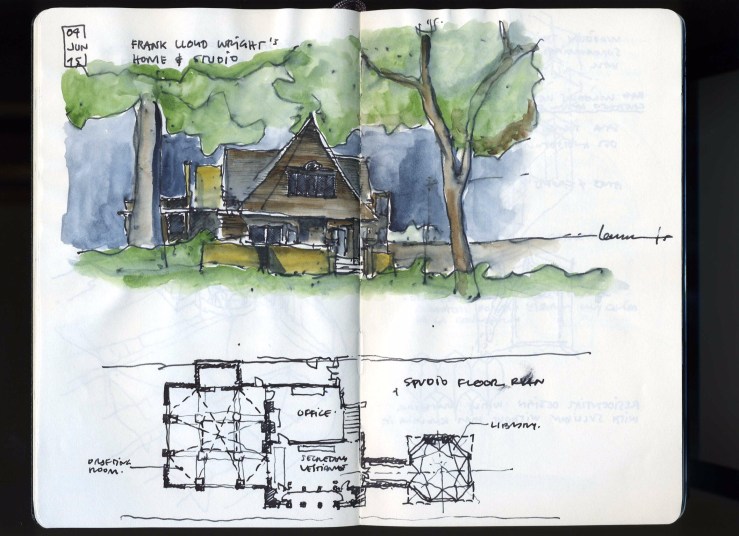 04
JUN
15
FRANK LLOYD WRIGHT'S
HOME & STUDIO
STUDIO FLOOR PLAN
OFFICE.
LIBRARY.
DRAFTING
ROOM.